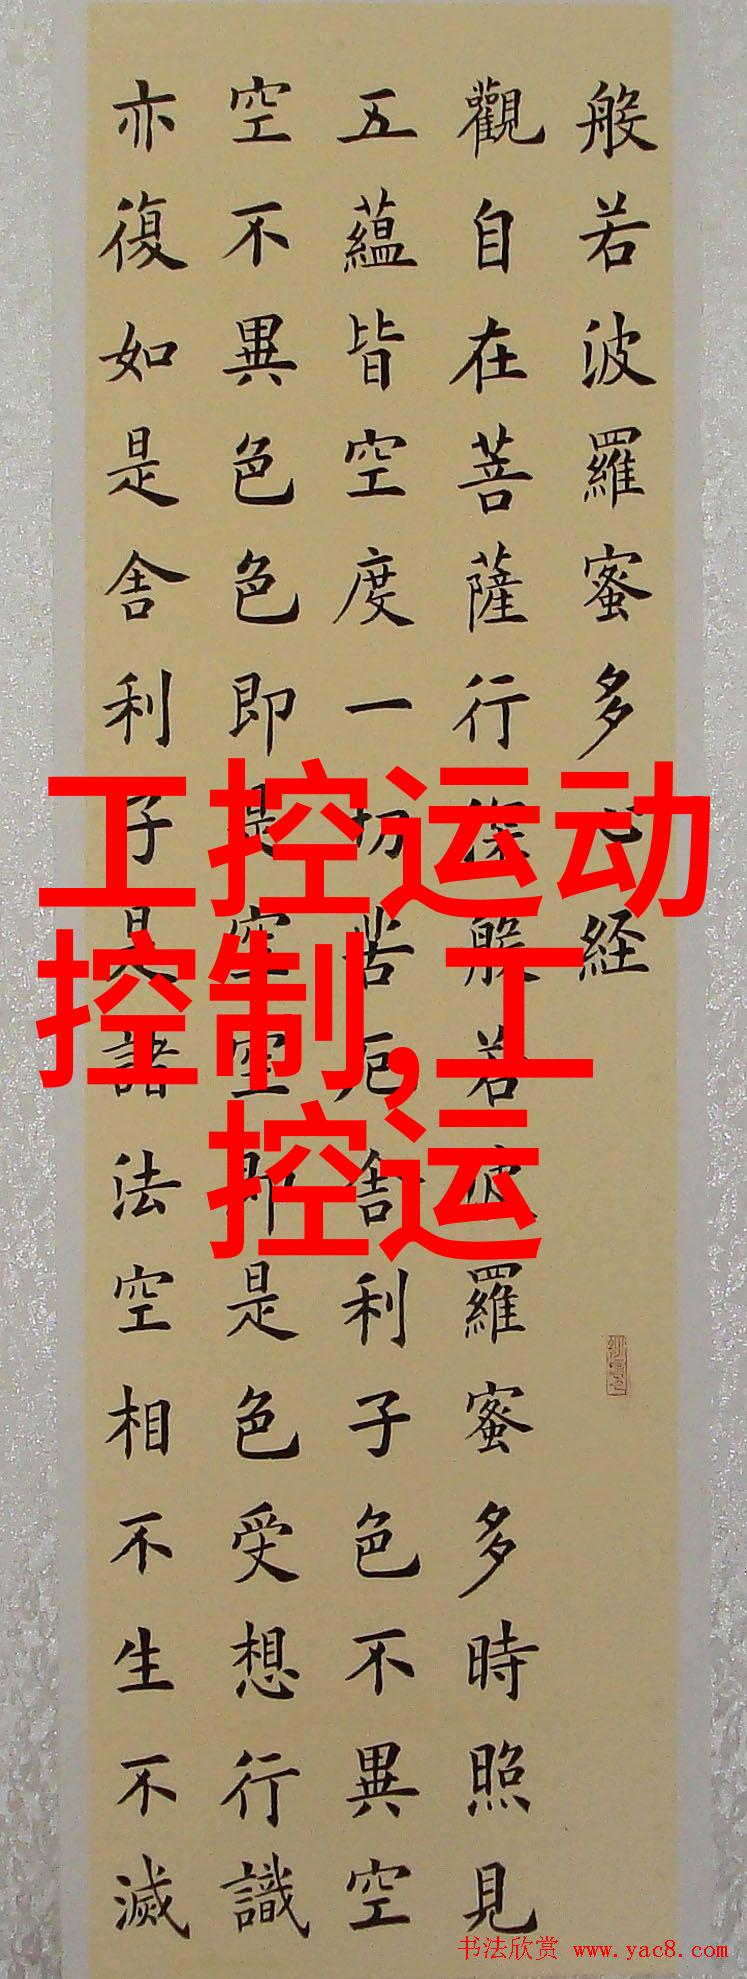 般若波羅蜜多心経
觀自在菩薩行深般若波羅蜜多時照見
五蘊皆空度一切苦厄舍利子色不異空
空不異色色即是空空即是色受想行識
亦復如是舍利子是諸法空相不生不滅
工控运动
控制,工
控运
书法欣赏 www.yac8.com